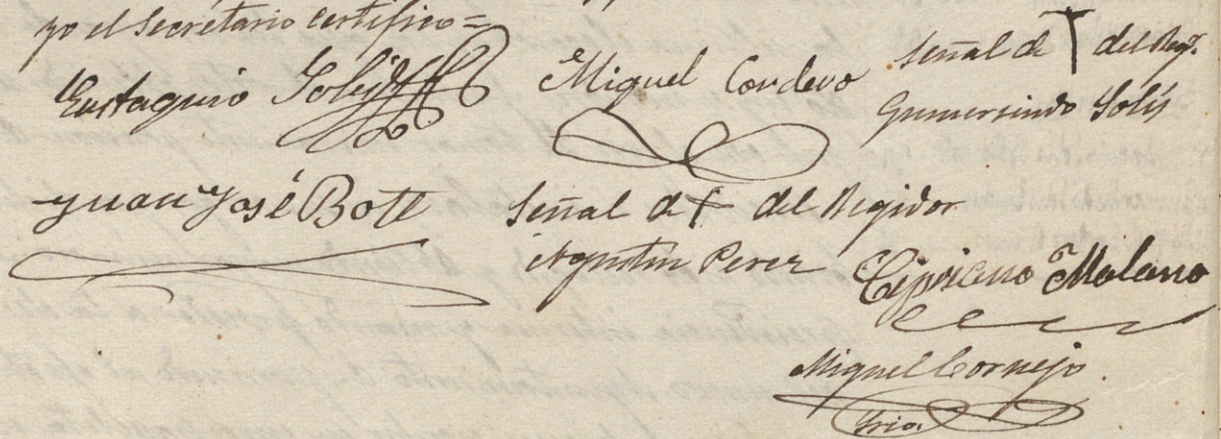 yo el Secretario certifico=
Eustaquio Solis Miguel Cordero Señal de † del Regr.
Gumersindo Solis
Juan José Bote Señal de † del Regidor
Agustin Perez Cipriano Molano
Miguel Cornejo.
Srio.